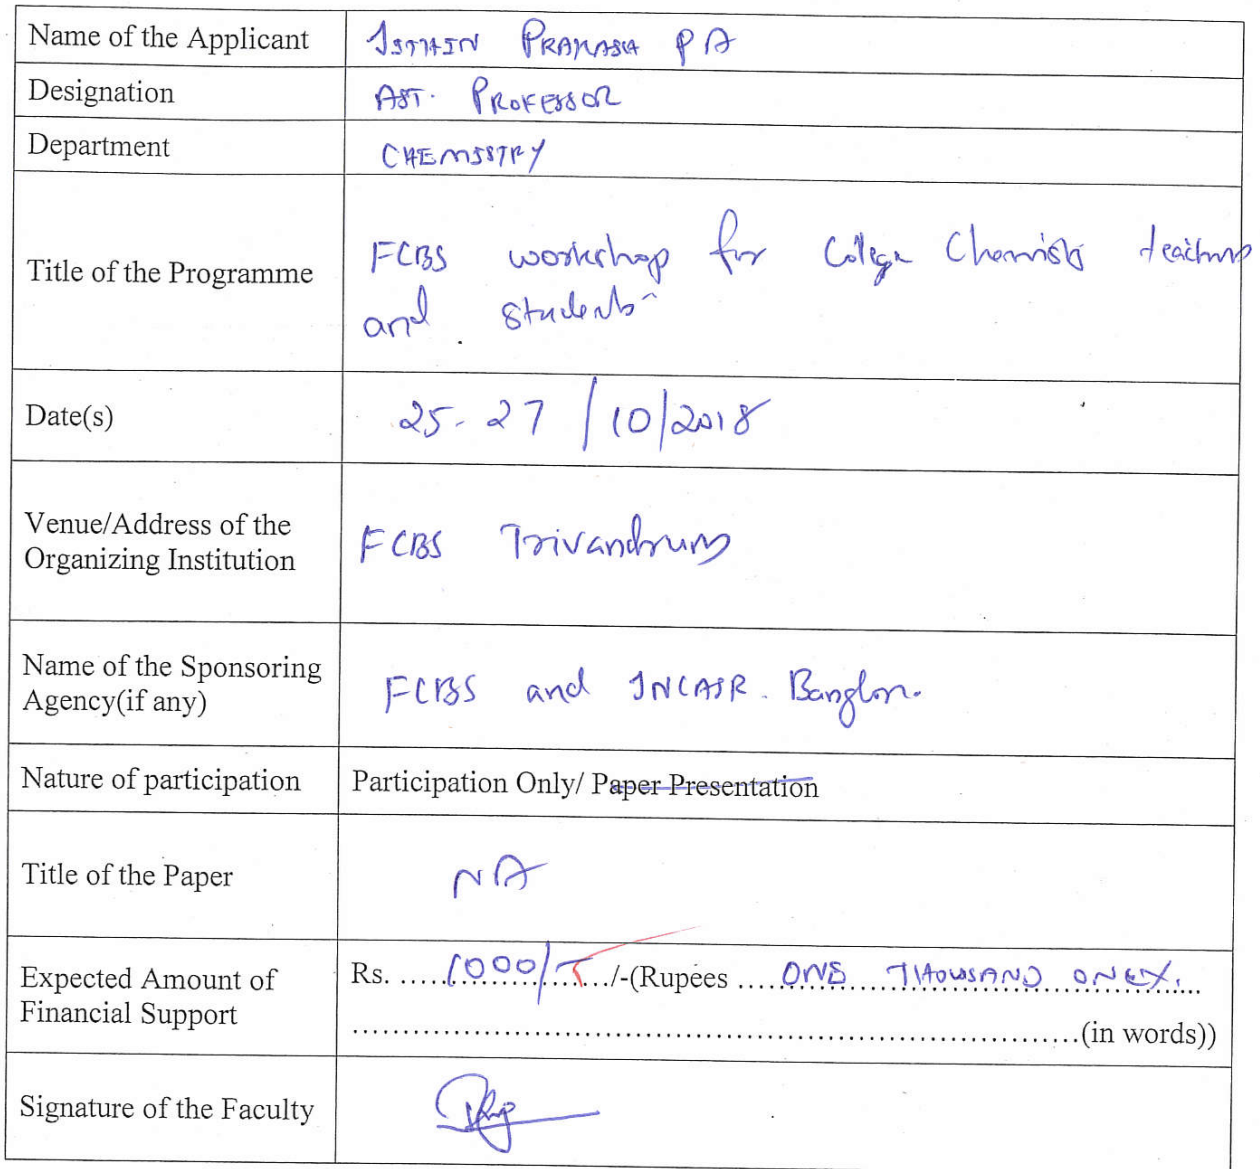 Name of the Applicant JITHIN PRAKASH P A
Designation AST. PROFESSOR
Department CHEMISTRY
Title of the Programme FCBS workshop for College Chemistry teachers
and students
Date(s) 25-27/10/2018
Venue/Address of the
Organizing Institution FCBS Trivandrum
Name of the Sponsoring
Agency(if any) FCBS and JNCASR. Banglore.
Nature of participation Participation Only/ Paper Presentation
Title of the Paper NA
Expected Amount of
Financial Support
Rs. .....1000/-....../-(Rupees .....ONE THOUSAND ONLY.....
.....(in words))
Signature of the Faculty